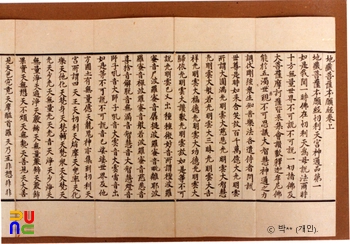 地藏菩薩本願經卷上
地藏菩薩本願經忉利天宮神通品第一
如是我聞一時佛在忉利天為母說法爾時
十方無量世界不可說不可說一切諸佛及
大菩薩摩訶薩皆來集會讚歎釋迦牟尼佛
能於五濁惡世現不可思議大智慧神通之力
調伏剛強衆生知苦樂法各遣侍者問訊
世尊是時如來含笑放百千萬億大光明雲
所謂大圓滿光明雲大慈悲光明雲大智
慧光明雲大般若光明雲大三昧光明雲大吉
祥光明雲大福德光明雲大功德光明雲大
歸依光明雲大讚歎光明雲放如是等不可
說光明雲已又出種種微妙之音所謂檀波
羅蜜音尸波羅蜜音羼提波羅蜜音毗離耶波
羅蜜音禪波羅蜜音般若波羅蜜音慈悲音
喜捨音解脫音無漏音智慧音大智慧音師
子吼音大師子吼音雲雷音大雲雷音出
如是等不可說不可說音已娑婆世界及他
方國土有無量億天龍鬼神亦集到忉利天
宮所謂四天王天忉利天須燄摩天兜率陀天化
樂天他化自在天梵衆天梵輔天大梵天
少光天無量光天光音天少淨天
無量淨天遍淨天福生天福愛天廣
果天無想天無煩天無熱天善見天善現
天色究竟天摩醯首羅天乃至非想非非
© 박** (개인).